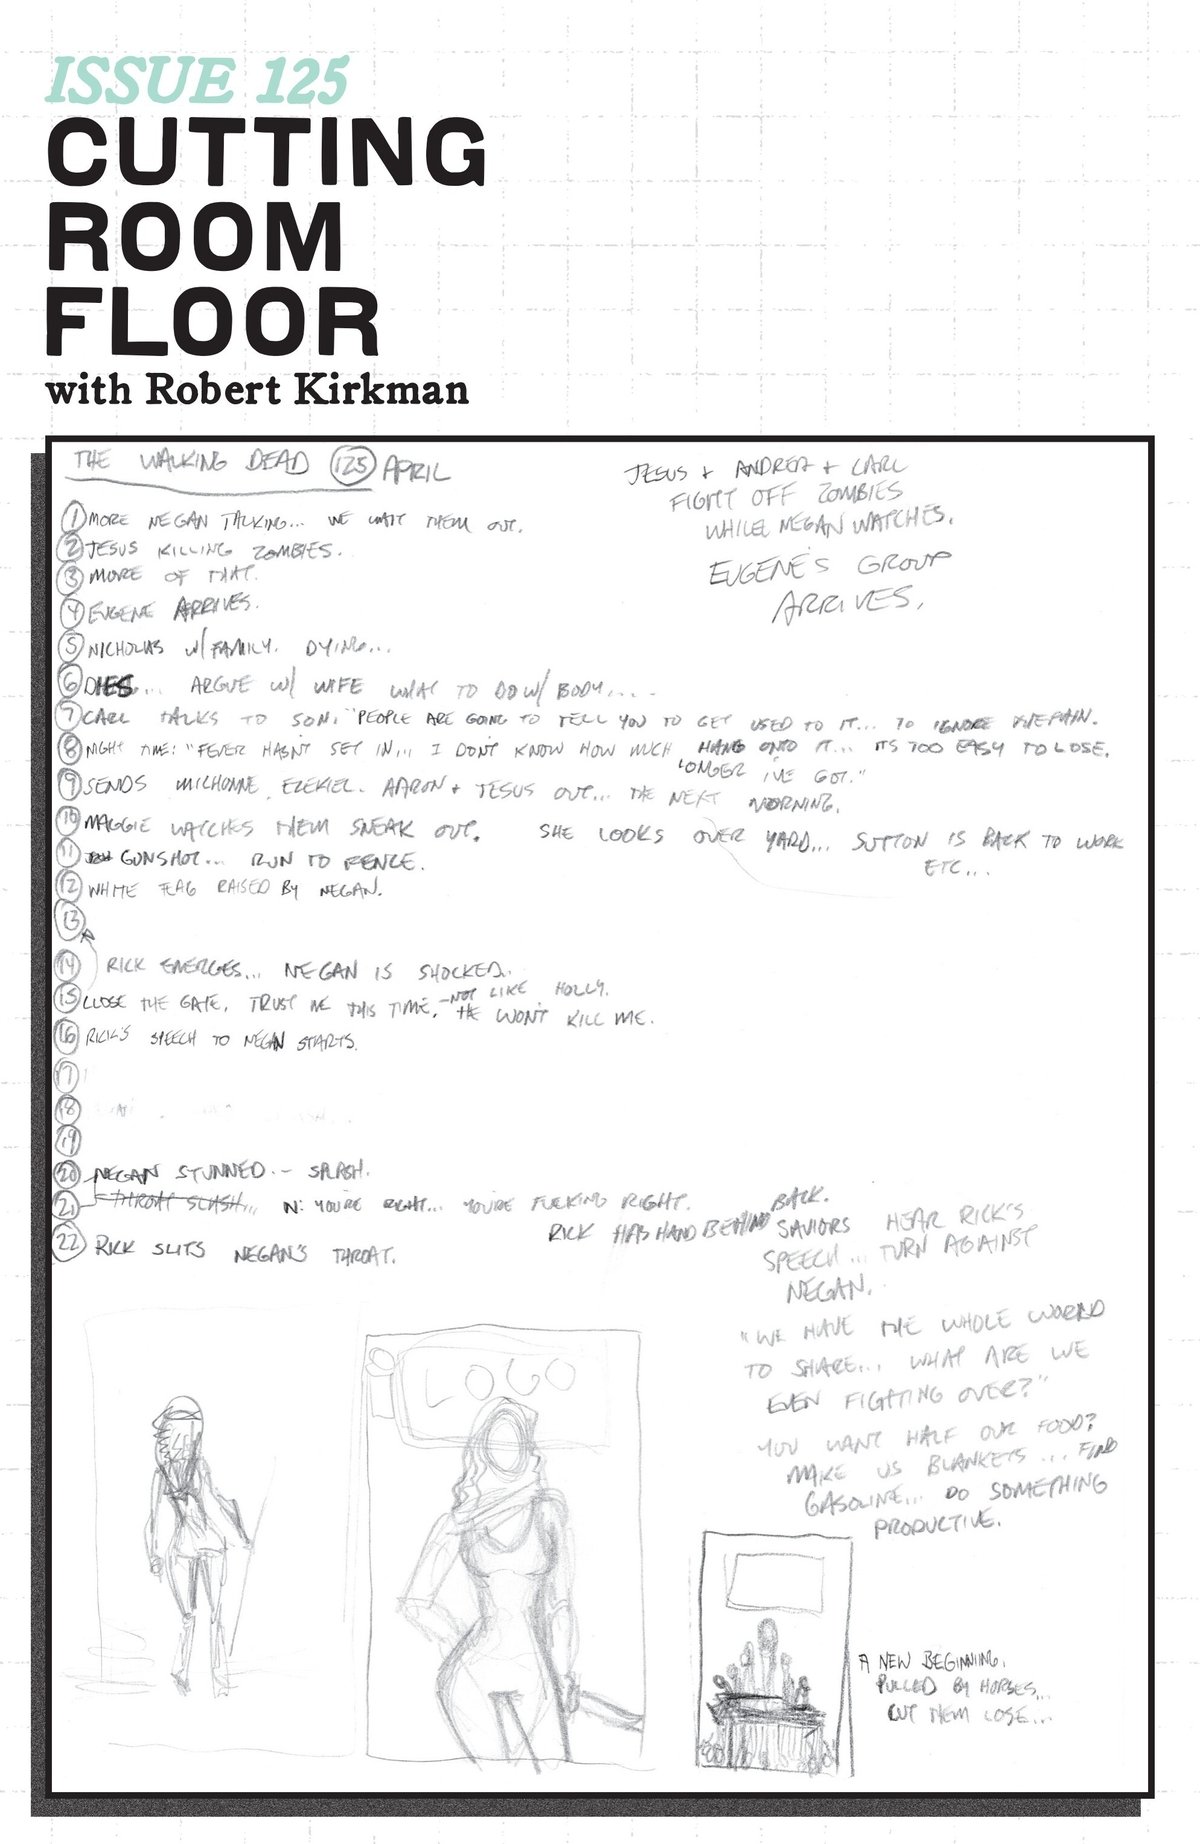 ISSUE 125
CUTTING
ROOM
FLOOR
with Robert Kirkman
THE WALKING DEAD 125 APRIL
1 MORE NEGAN TALKING... WE WAIT THEM OUT.
2 JESUS KILLING ZOMBIES.
3 MORE OF THAT.
4 EUGENE ARRIVES.
5 NICHOLAS W/FAMILY. DYING...
6 DIES... ARGUE W/ WIFE WHAT TO DO W/ BODY....
7 CARL TALKS TO SON. "PEOPLE ARE GOING TO TELL YOU TO GET USED TO IT... TO IGNORE THE PAIN.
HANG ONTO IT... ITS TOO EASY TO LOSE.
8 NIGHT TIME: "FEVER HASN'T SET IN... I DON'T KNOW HOW MUCH
LONGER I'VE GOT."
9 SENDS MICHONNE, EZEKIEL. AARON + JESUS OUT... THE NEXT MORNING.
10 MAGGIE WATCHES THEM SNEAK OUT. SHE LOOKS OVER YARD... SUTTON IS BACK TO WORK
ETC...
11 GUNSHOT... RUN TO FENCE.
12 WHITE FLAG RAISED BY NEGAN.
13
14 RICK EMERGES... NEGAN IS SHOCKED.
15 CLOSE THE GATE, TRUST ME THIS TIME, -NOT LIKE HOLLY.
HE WON'T KILL ME.
16 RICK'S SPEECH TO NEGAN STARTS.
17
18
19
20 NEGAN STUNNED -- SPLASH.
21 THROAT SLASH... N: YOU'RE RIGHT... YOU'RE FUCKING RIGHT.
RICK HAS HAND BEHIND BACK.
22 RICK SLITS NEGAN'S THROAT.
JESUS + ANDREA + CARL
FIGHT OFF ZOMBIES
WHILE NEGAN WATCHES.
EUGENE'S GROUP
ARRIVES.
SAVIORS HEAR RICK'S
SPEECH... TURN AGAINST
NEGAN.
"WE HAVE THE WHOLE WORLD
TO SHARE... WHAT ARE WE
EVEN FIGHTING OVER?"
YOU WANT HALF OUR FOOD?
MAKE US BLANKETS... FIND
GASOLINE... DO SOMETHING
PRODUCTIVE.
LOGO
A NEW BEGINNING.
PULLED BY HORSES...
CUT THEM LOSE...